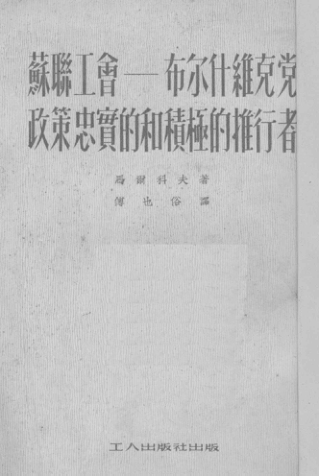 蘇聯工會——布尔什維克党
政策忠實的和積極的推行者
馬爾科夫著
傅也俗譯
工人出版社出版